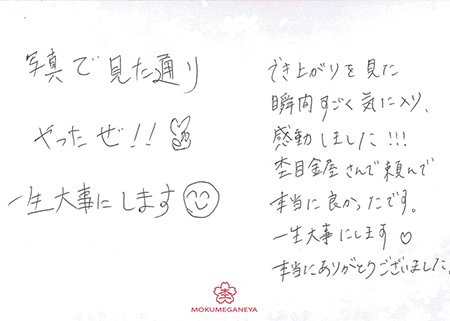 写真で見た通り
やったぜ!!✌
一生大事にします☺
でき上がりを見た
瞬間すごく気に入り、
感動しました!!!
杢目金屋さんで頼んで
本当に良かったです。
一生大事にします♡
本当にありがとうございました。
杢
MOKUMEGANEYA